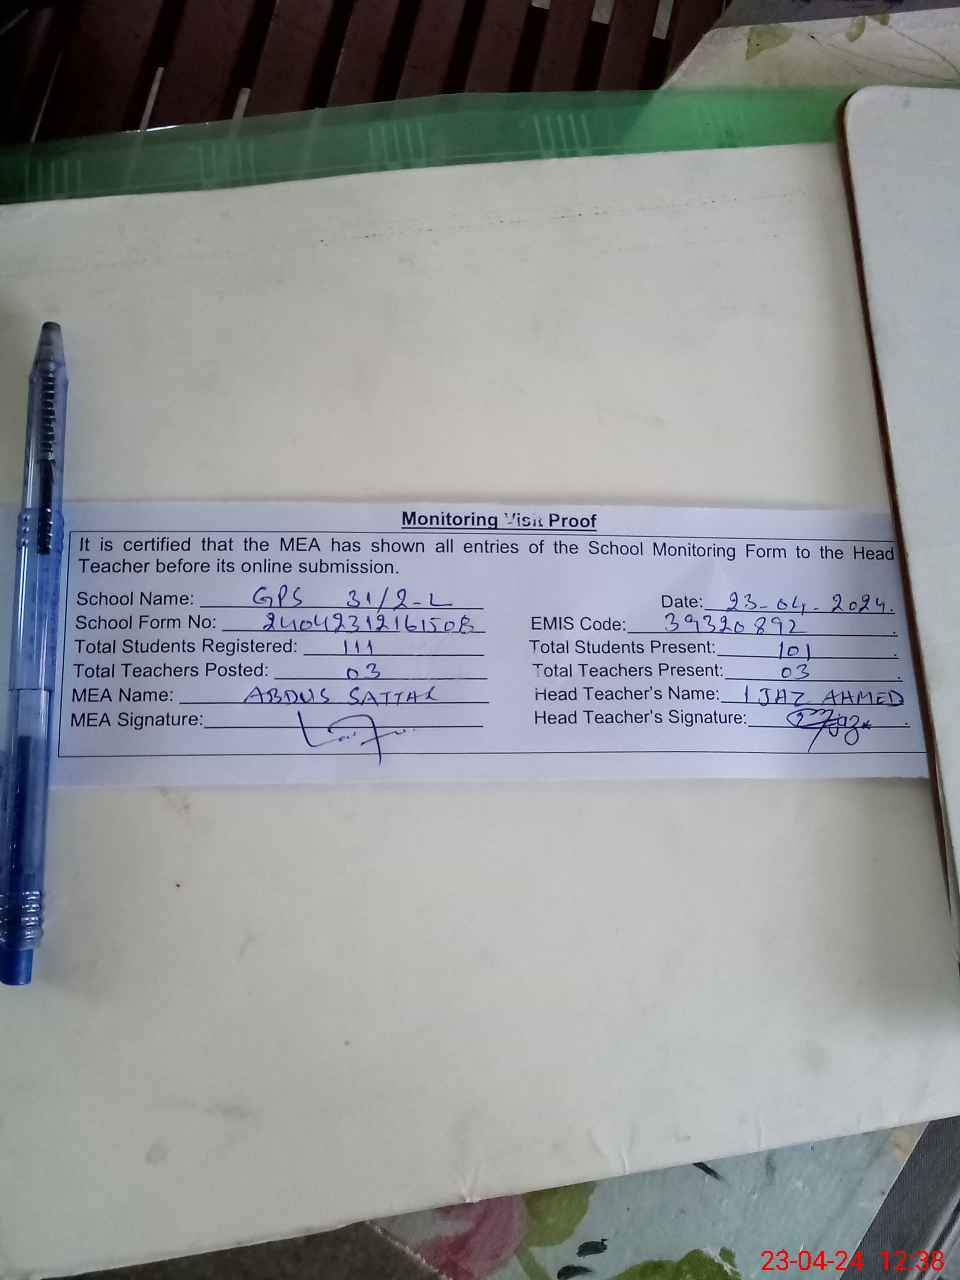 Monitoring Visit Proof
It is certified that the MEA has shown all entries of the School Monitoring Form to the Head
Teacher before its online submission.
School Name: GPS 31/2-L Date: 23-04-2024.
School Form No: EMIS Code: 39320892
Total Students Registered: 111 Total Students Present: 101
Total Teachers Posted: 03 Total Teachers Present: 03
MEA Name: ABDUS SATTAR Head Teacher's Name: IJAZ AHMED
MEA Signature: Head Teacher's Signature:
23-04-24 12:38